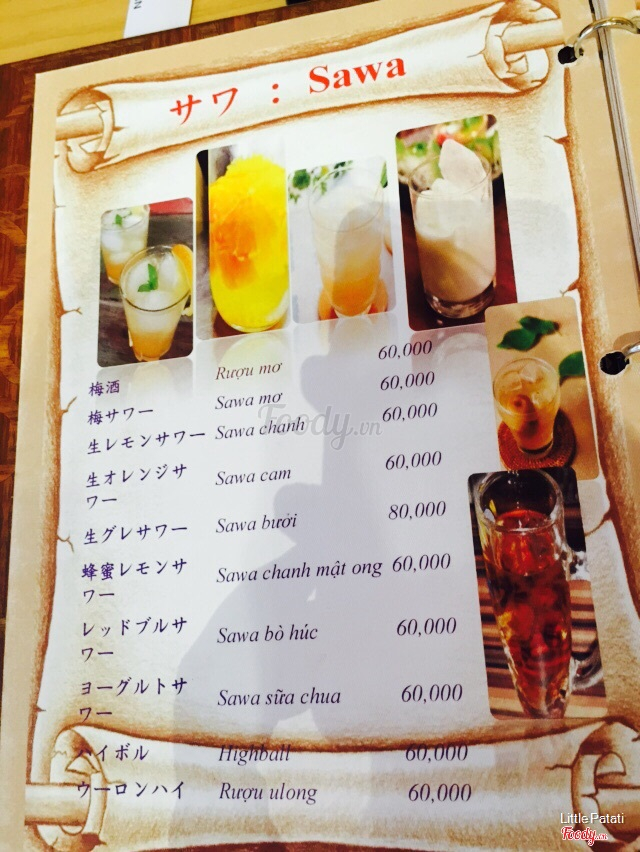 サワ : Sawa
梅酒 Rượu mơ 60,000
梅サワー Sawa mơ 60,000
生レモンサワー Sawa chanh 60,000
生オレンジサ
ワー Sawa cam 60,000
生グレサワー Sawa bưởi 80,000
蜂蜜レモンサ
ワー Sawa chanh mật ong 60,000
レッドブルサ
ワー Sawa bò húc 60,000
ヨーグルトサ
ワー Sawa sữa chua 60,000
ハイボル Highball 60,000
ウーロンハイ Rượu ulong 60,000
Foody.vn
Little Patati
Foody.vn